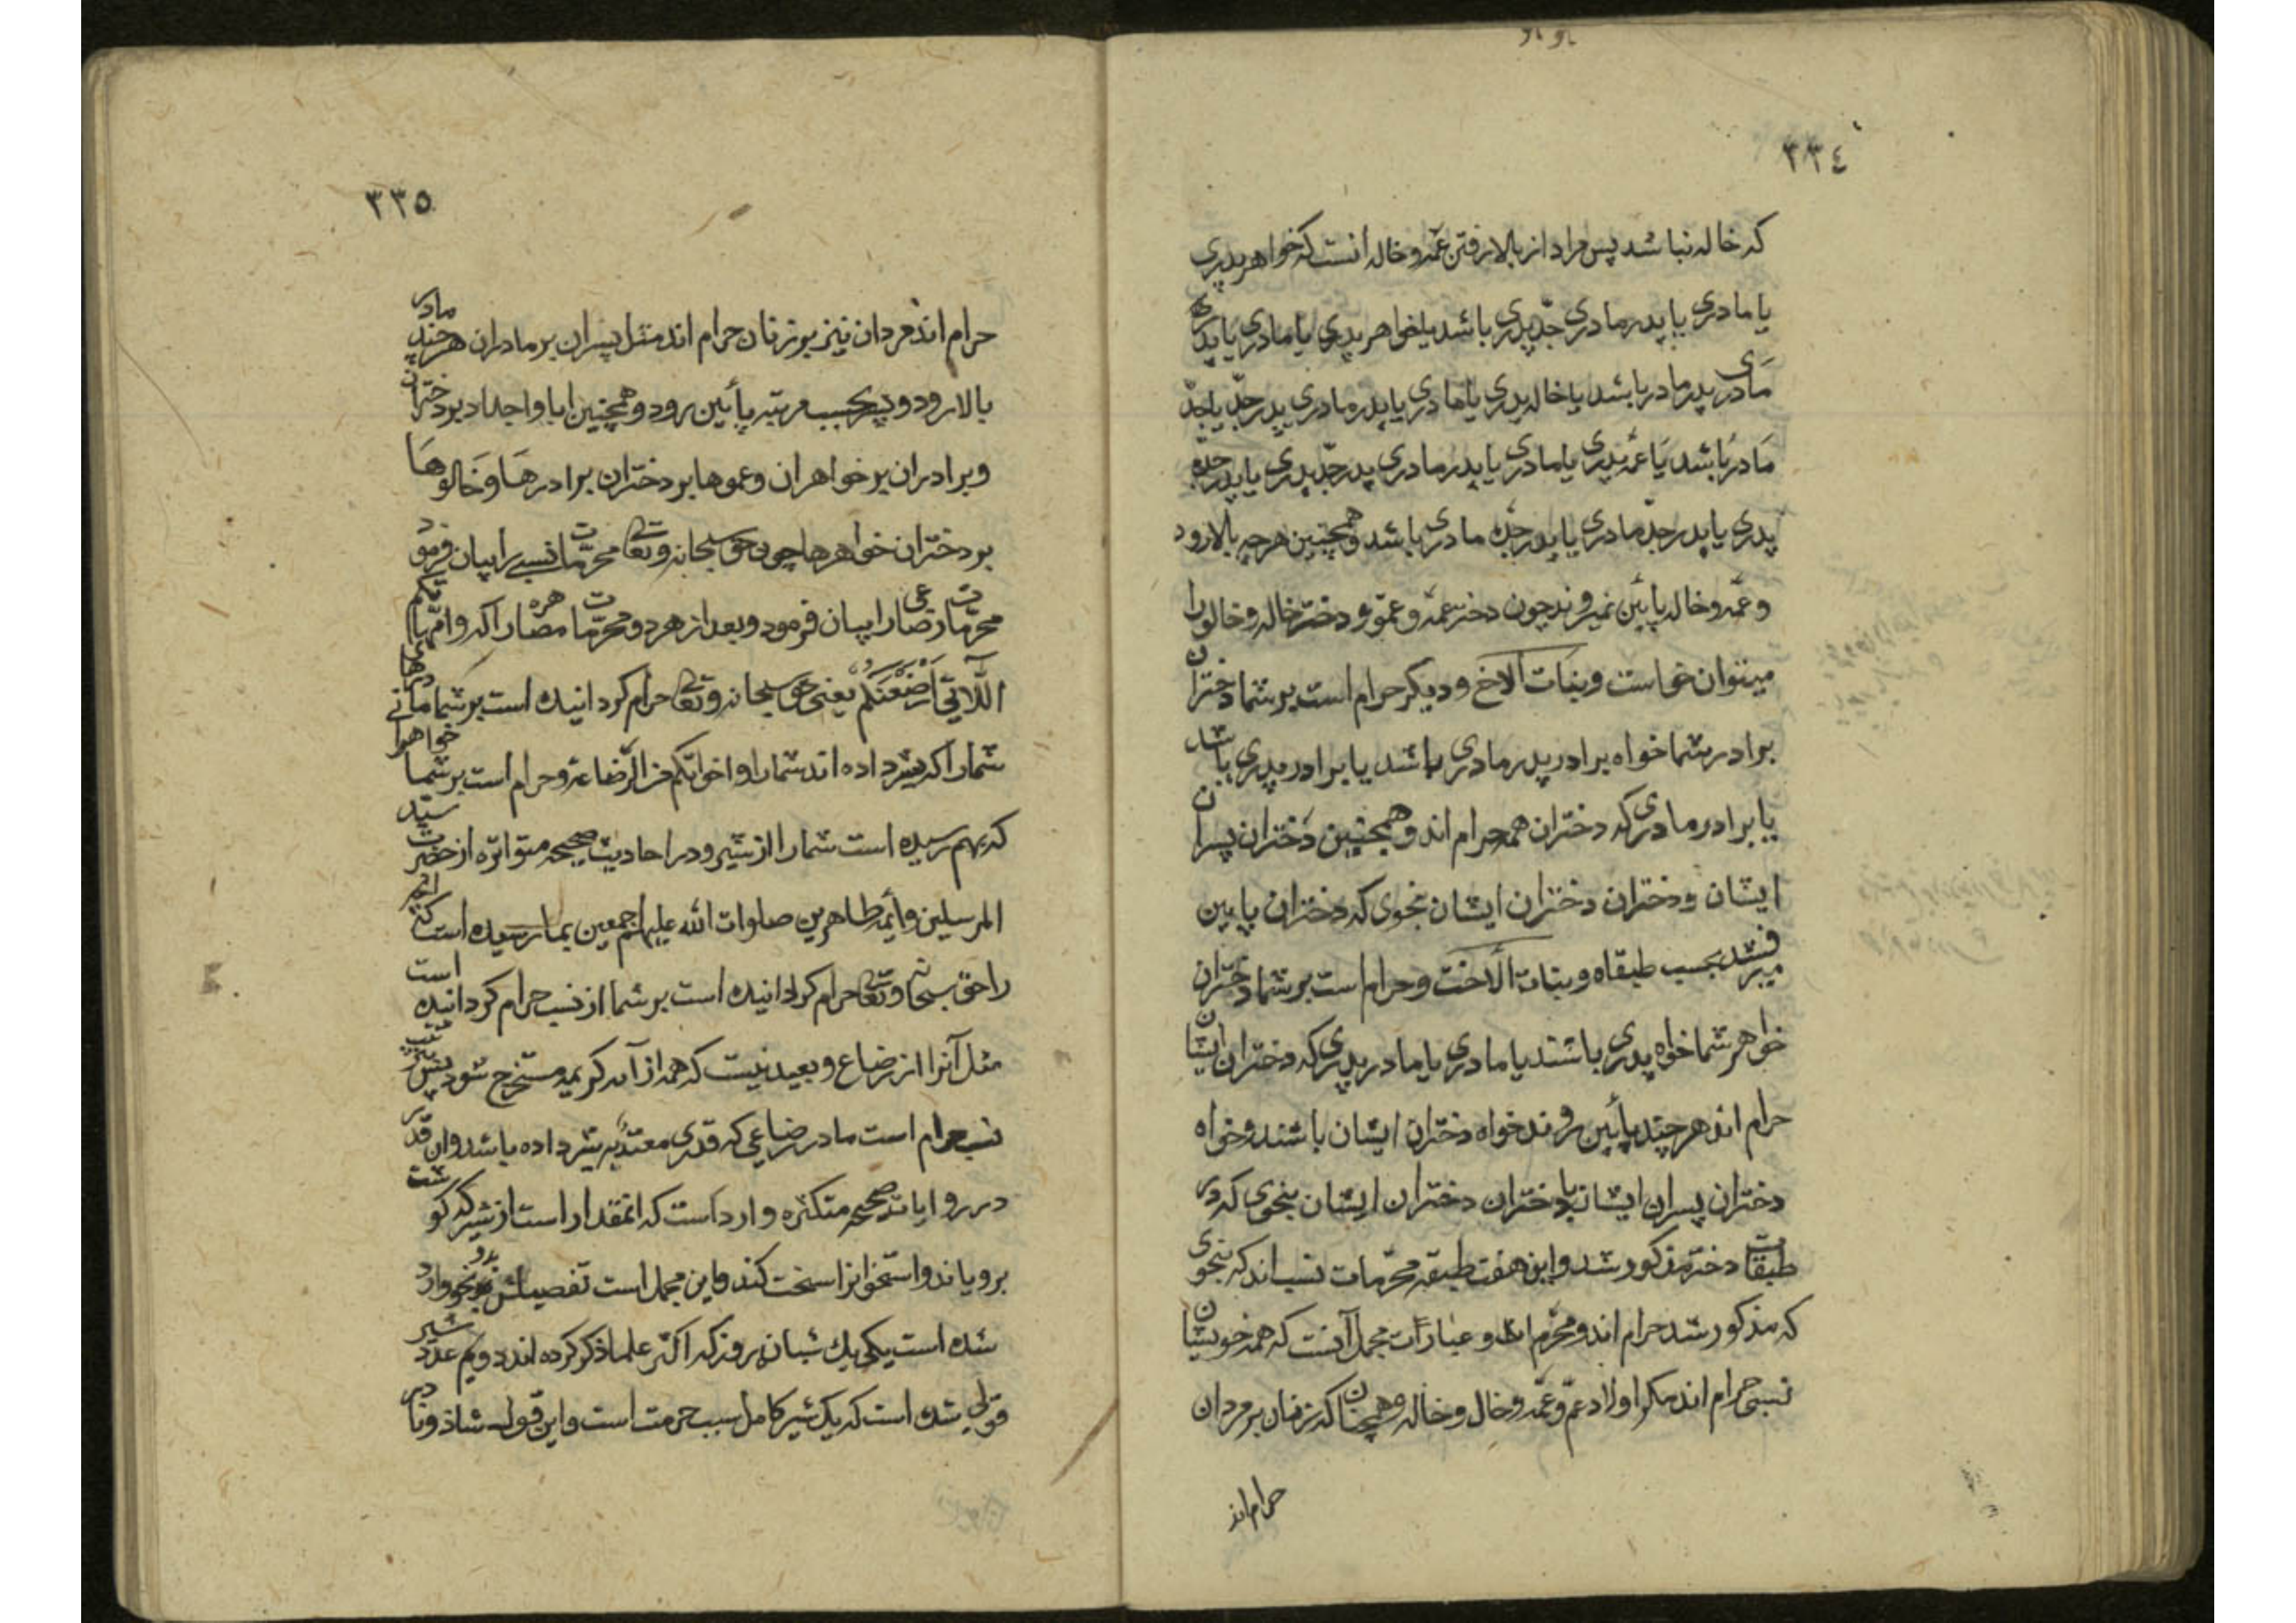 ٣٣٤
که خاله نباشد پس مراد از بالا رفتن عمّه و خاله آنست که خواهر پدری
یا مادری یا پدر مادری جدّ پدری باشد یا خواهر پدری یا مادری یا پدر
مادری پدر مادر باشد یا خاله پدری یا مادری یا پدر مادری پدر جدّ یا جدّ
مادر باشد یا عمّه پدری یا مادری یا پدر مادری پدر جدّ پدری یا پدر جدّه
پدری یا پدر جدّ مادری یا پدر جدّه مادری باشد و همچنین هر چه بالا رود
و عمّه و خاله پایین نمیروند چون دختر عمّه و عمّو و دختر خاله و خالو را
میتوان خواست وبنات الاخ و دیکر حرام است بر شما دختران
برادر شما خواه برادر پدر مادری باشد یا برادر پدری باشد
یا برادر مادری که دختران همه حرام اند و همچنین دختران پسران
ایشان و دختران دختران ایشان بنحوی که دختران پایین
میرفتند بحسب طبقاه و بنات الاخت و حرام است بر شما دختران
خواهر شما خواه پدری باشند یا مادری یا مادر پدری که دختران ایشان
حرام اند هر چند پایین روند خواه دختران ایشان باشند و خواه
دختران پسران ایشان یا دختران دختران ایشان بنحوی که در
طبقات دختر مذکور شد و این هفت طبقه محرّمات نسب اند که بنحوی
که مذکور شد حرام اند و محرم اند و عبارات مجمل آنست که همه خویشان
نسبی حرام اند مکر اولاد عمّ و عمّه و خال و خاله و همچنان که زنان بر مردان
حرام اند
٣٣٥
حرام اند مردان نیز بر زنان حرام اند مثل پسران بر مادران هر چند مادر
بالا رود و پسر بحسب مرتبه پائین رود و همچنین ابا و اجداد بر دختران
و برادران بر خواهران و عموها بر دختران برادرها و خالوها
بر دختران خواهرها چون حق سبحانه و تعالی محرّمات نسبی را بیان فرمود
محرّمات رضاعی را بیان فرمود و بعد از هر دو محرّمات مصاهره را که وامّهاتکم
اللّاتی اَرْضَعْنَکُمْ یعنی حق سبحانه و تعالی حرام کردانیده است بر شما مادرهائی
شما را که شیر داده اند شما را و اخواتکم من الرّضاعة و حرام است بر شما خواهر
که بهم رسیده است شما را از شیر و در احادیث صحیحه متواتره از حضرت سید
المرسلین و أیمه طاهرین صلوات الله علیهم اجمعین بما رسیده است که آنچه
را حق سبحانه و تعالی حرام کردانیده است بر شما از نسب حرام کردانیده است
مثل آنرا از رضاع و بعید نیست که همه از آیه کریمه مستخرج شود پس
نسب حرام است مادر رضاعی که قدری معتدّ به شیر داده باشد وان قدر
در روایات صحیحه متکثره وارد است که انمقدار است از شیر که کوشت
برویاند و استخوانرا سخت کند و این مجمل است تفصیلش بدو نحو وارد
شده است یکی یك شبانه روز که اکثر علما ذکر کرده اند دویم عدد شیر
قولی شده است که یك شیر کامل سبب حرمت است و این قول شاذ و نادر